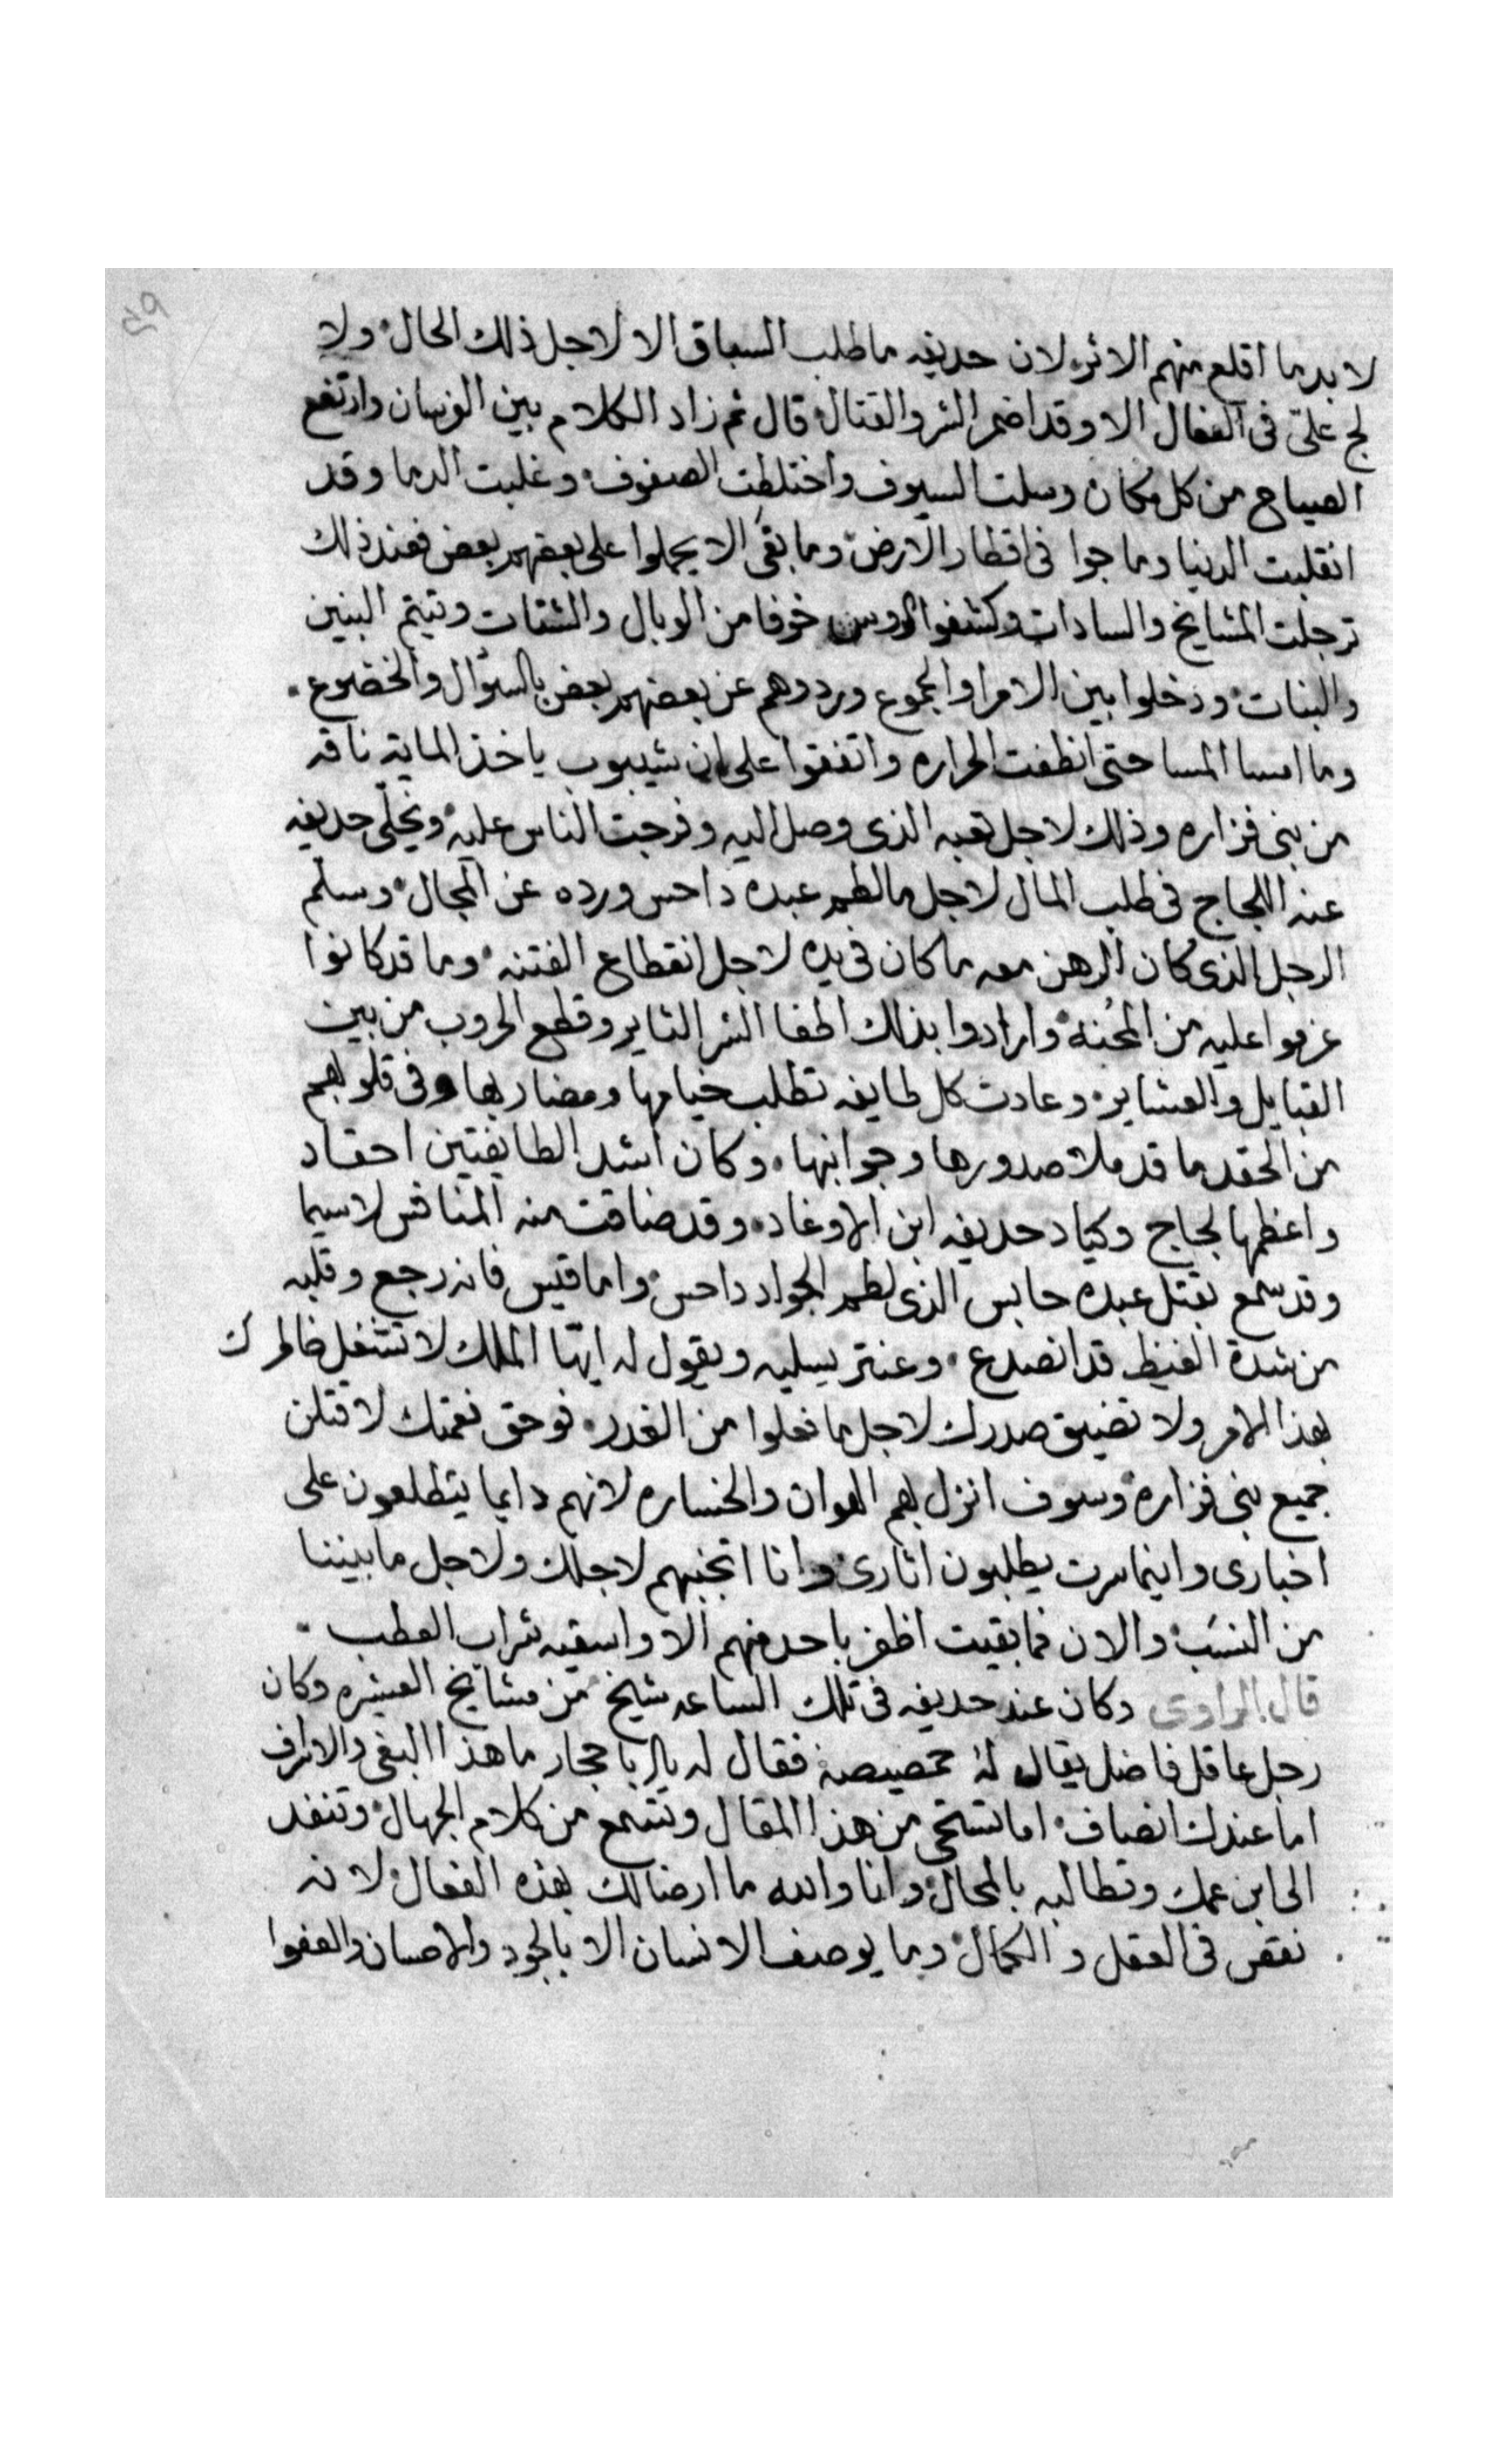 لا بد ما اقلع منهم الاثر لان حديفه ما طلب السباق الا لاجل ذلك الحال ولا
لج علىّ فى الفعال الا وقد اضمر الشر والقتال قال ثم زاد الكلام بين الفرسان وارتفع
الصياح من كل مكان وسلت السيوف واختلطت الصفوف وغلبت الدما وقد
انقلبت الدنيا وماجوا فى اقطار الارض وما بقى الا يحملوا على بعضهم بعض فعند ذلك
ترجلت المشايخ والسادات وكشفوا الروس خوفا من الوبال والشتات وتيتم البنين
والبنات ودخلوا بين الامرا والجموع ورددوهم عن بعضهم بعض بالسؤال والخضوع
وما امسا المسا حتى انطفت الحراره واتفقوا على ان شيبوب ياخذ الماية ناقه
من بنى فزاره وذلك لاجل تعبه الذى وصل اليه وفرجت الناس عليه ويخلّى حديفه
عنه اللجاج فى طلب المال لاجل ما لطم عبده داحس ورده عن المجال وسلم
الرجل الذى كان الرهن معه ما كان فى يده لاجل انقطاع الفتنه وما قد كانوا
عزموا عليه من المحنه وارادوا بذلك اطفا الشر الثاير وقطع الحروب من بين
القبايل والعشاير وعادت كل طايفه تطلب خيامها ومضاربها وفى قلوبهم
من الحقد ما قد ملا صدورها وجوانبها وكان اشد الطايفتين احقاد
واعظمها لجاج وكياد حديفه ابن الاوغاد وقد ضاقت منه المنافس لاسيما
وقد سمع بقتل عبده حابس الذى لطم الجواد داحس واما قيس فانه رجع وقلبه
من شدة الغيظ قد انصدع وعنتر يسليه ويقول له ايها الملك لا تشغل خاطرك
بهذا الامر ولا تضيق صدرك لاجل ما فعلوا من الغدر فوحق نعمتك لاقتلن
جميع بنى فزاره وسوف انزل بهم الهوان والخساره لانهم دايما يتطلعون على
اخبارى واينما سرت يطلبون اثارى وانا اتجنبهم لاجلك ولاجل ما بيننا
من النسب والان فما بقيت اظفر باحد منهم الا واسقيه شراب العطب
قال الراوى وكان عند حديفه فى تلك الساعه شيخ من مشايخ العشيره وكان
رجل عاقل فاضل يقال له حصيصه فقال له يال با حجار ما هذا البغى والاسراف
اما عندك انصاف اما تستحى من هذا المقال وتسمع من كلام الجهال وتنفد
الى ابن عمك وتطالبه بالمحال وانا والله ما ارضا لك بهذه الفعال لانه
نقص فى العقل والكمال وما يوصف الانسان الا بالجود والاحسان والعفوا